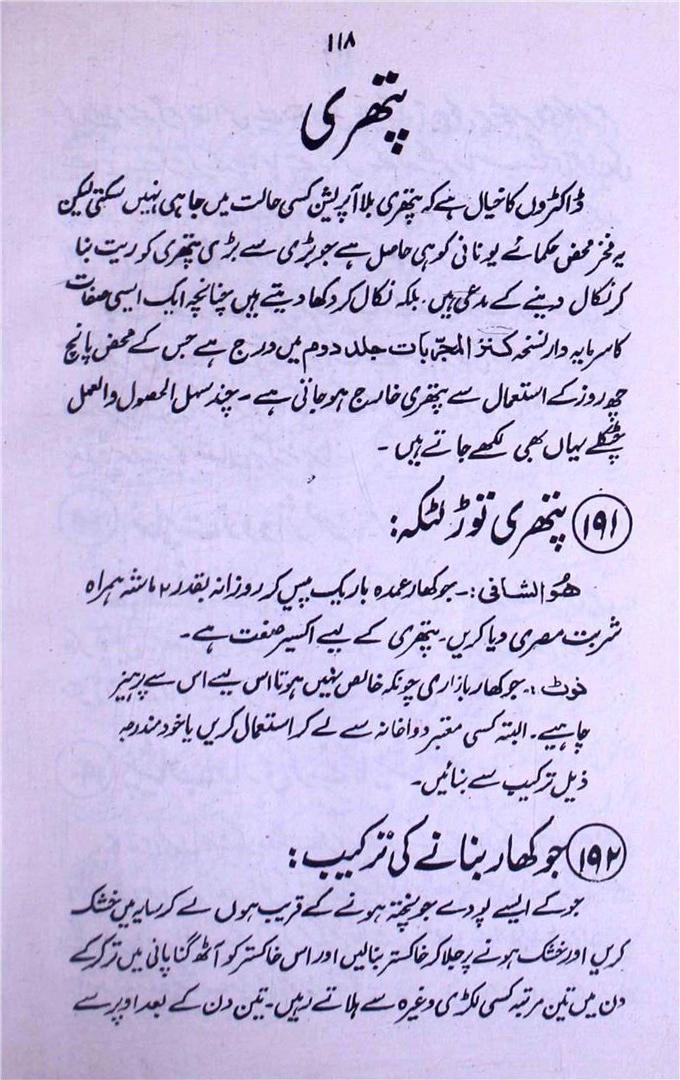 ۱۱۸
پتھری
ڈاکٹروں کا خیال ہے کہ پتھری بلا آپریشن کسی حالت میں جا ہی نہیں سکتی لیکن
یہ فخر محض حکمائے یونانی کو ہی حاصل ہے جو بڑی سے بڑی پتھری کو ریت بنا
کر نکال دینے کے مدعی ہیں۔ بلکہ نکال کر دکھا دیتے ہیں چنانچہ ایک ایسی صفات
کا سرمایہ دار نسخہ کنز المجربات جلد دوم میں درج ہے جس کے محض پانچ
چھ روز کے استعمال سے پتھری خارج ہو جاتی ہے۔ چند سہل الحصول والعمل
چٹکلے یہاں بھی لکھے جاتے ہیں۔
(۱۹۱) پتھری توڑ لٹکہ:
ھُوالشافی:۔ جوکھار عمدہ باریک پیس کر روزانہ بقدر ۲ ماشہ ہمراہ
شربت مصری دیا کریں۔ پتھری کے لیے اکسیر صفت ہے۔
نوٹ:۔ جوکھار بازاری چونکہ خالص نہیں ہوتا اس لیے اس سے پرہیز
چاہیے۔ البتہ کسی معتبر دواخانہ سے لے کر استعمال کریں یا خود مندرجہ
ذیل ترکیب سے بنائیں۔
(۱۹۲) جوکھار بنانے کی ترکیب:
جو کے ایسے پودے جو پختہ ہونے کے قریب ہوں لے کر سایہ میں خشک
کریں اور خشک ہونے پر جلا کر خاکستر بنالیں اور اس خاکستر کو آٹھ گنا پانی میں تر کر کے
دن میں تین مرتبہ کسی لکڑی وغیرہ سے ہلاتے رہیں۔ تین دن کے بعد اوپر سے